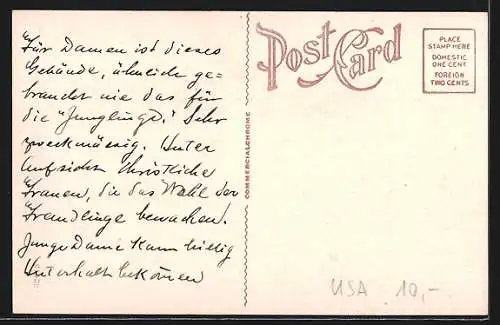 Für Damen ist dieses
Gebäude, ähnlich ge-
braucht wie das für
die "Jünglinge." Sehr
zweckmässig. Unter
Aufsicht Christliche
Frauen, die das Wohl der
Fremdlinge bewachen.
Junge Dame kann billig
Unterhalt bekomen
POST CARD
PLACE
STAMP HERE
DOMESTIC
ONE CENT
FOREIGN
TWO CENTS
COMMERCIALCHROME
USA 10,-